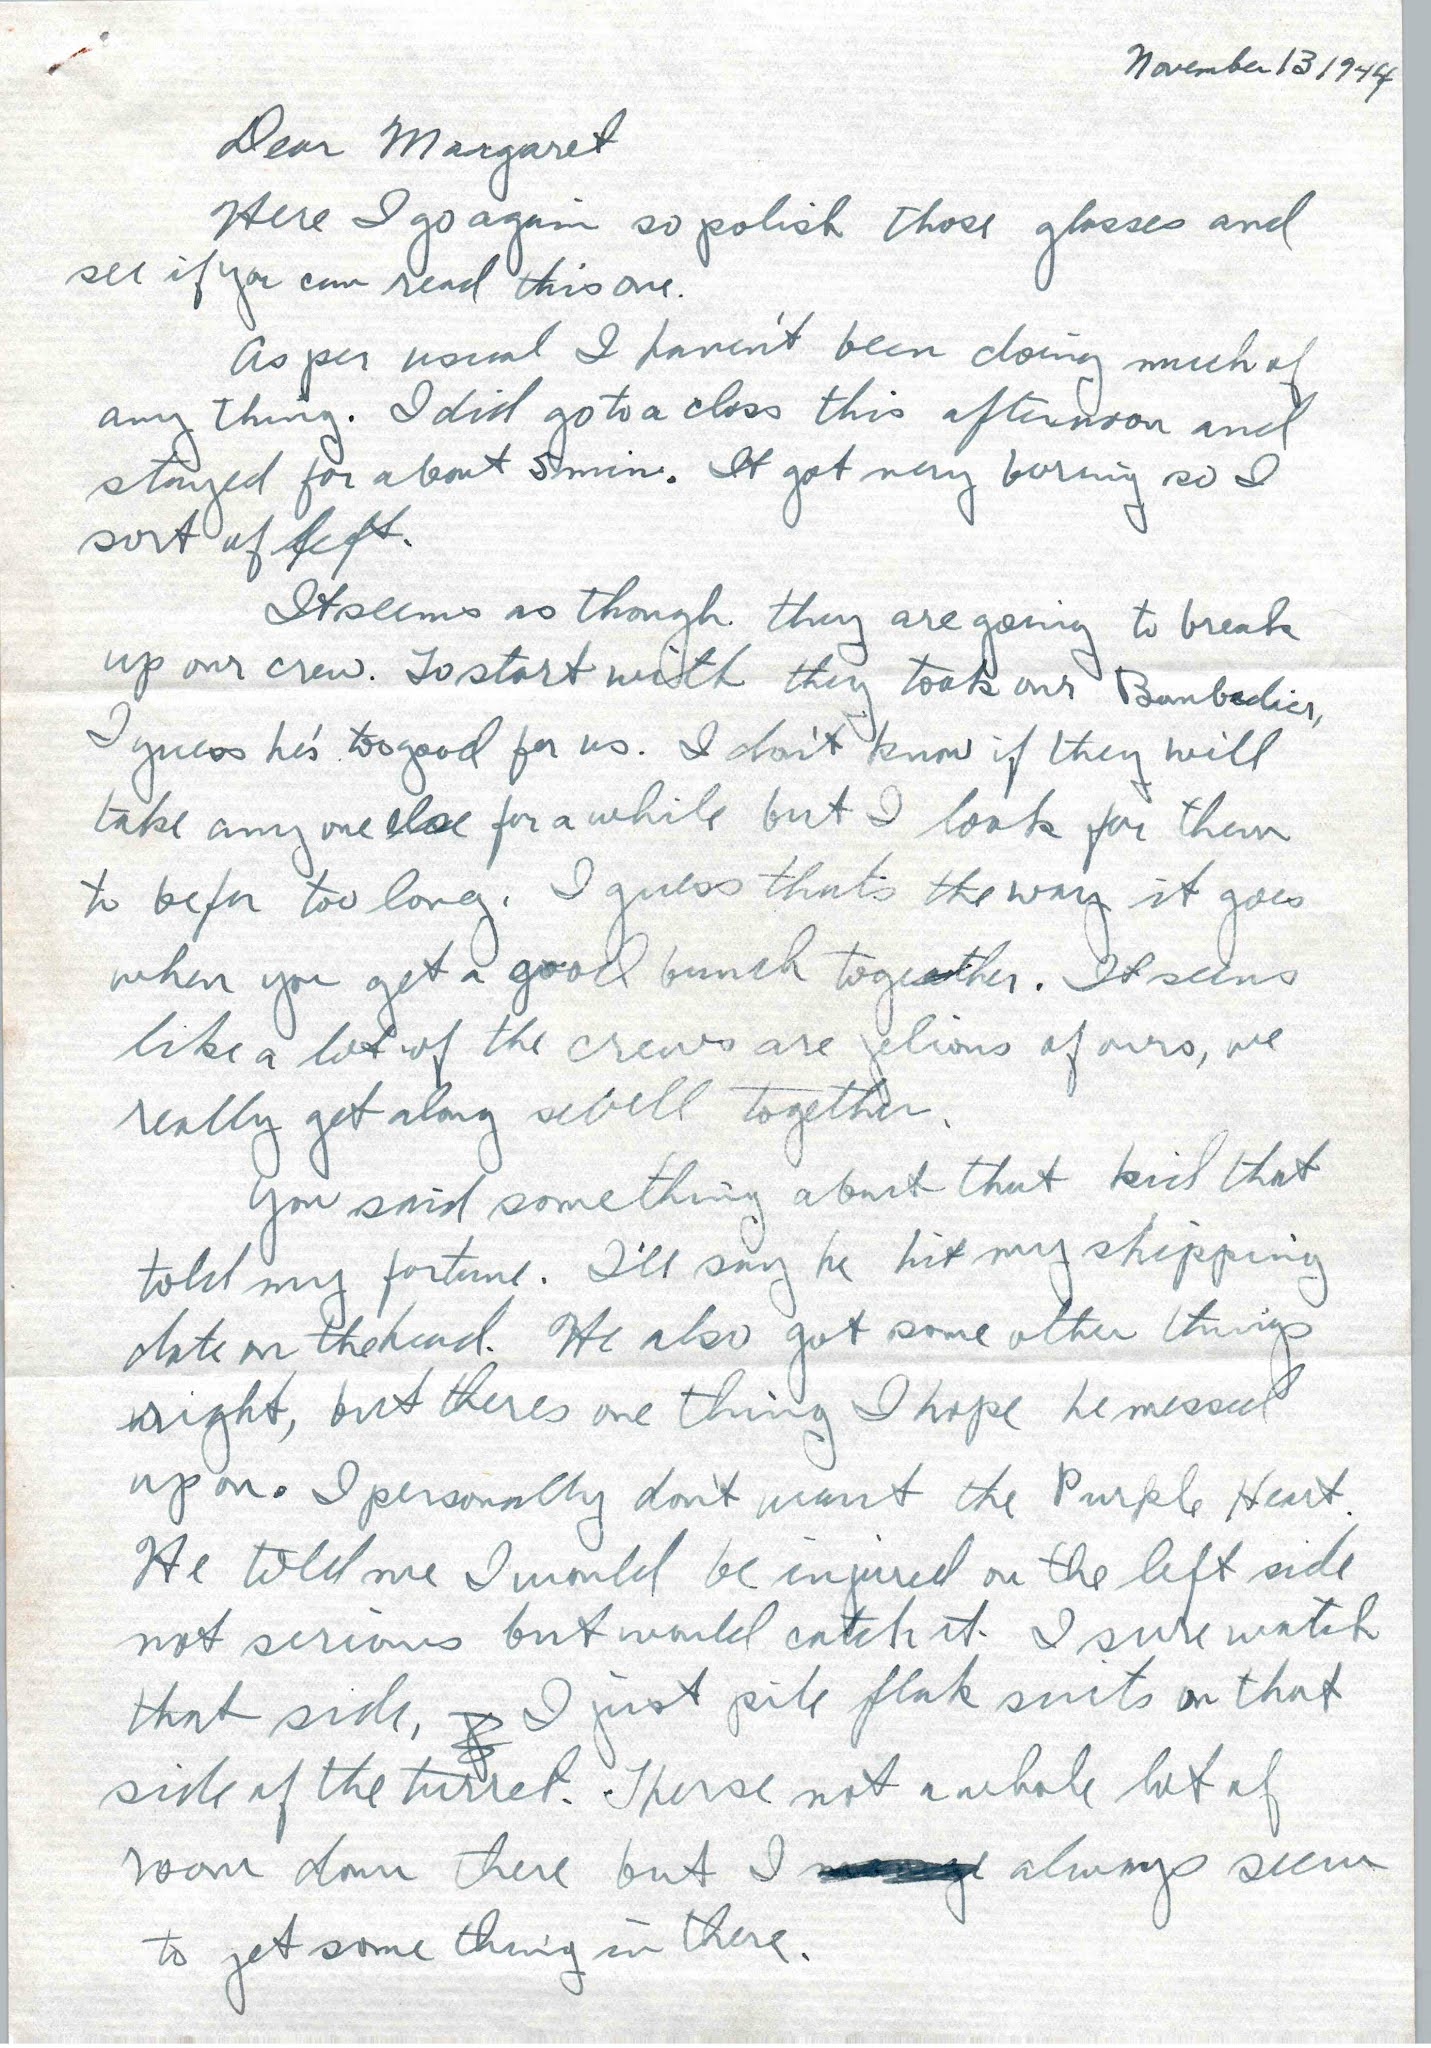 November 13 1944
Dear Margaret
Here I go again so polish those glasses and
see if you can read this one.
As per usual I haven't been doing much of
any thing. I did go to a class this afternoon and
stayed for about 5 min. It got very boring so I
sort of left.
It seems as though they are going to break
up our crew. To start with they took our Bombadier,
I guess he's too good for us. I don't know if they will
take any one else for a while but I look for them
to befor too long. I guess thats the way it goes
when you get a good bunch together. It seems
like a lot of the crews are jelious of ours, we
really get along swell together.
You said something about that kid that
told my fortune. I'll say he hit my shipping
date on the head. He also got some other things
right, but theres one thing I hope he messed
up on. I personally don't want the Purple Heart.
He told me I would be injured on the left side
not serious but would catch it. I sure watch
that side, I just pile flak suits on that
side of the turret. Therse not a whole lot of
room down there but I always seem
to get some thing in there.